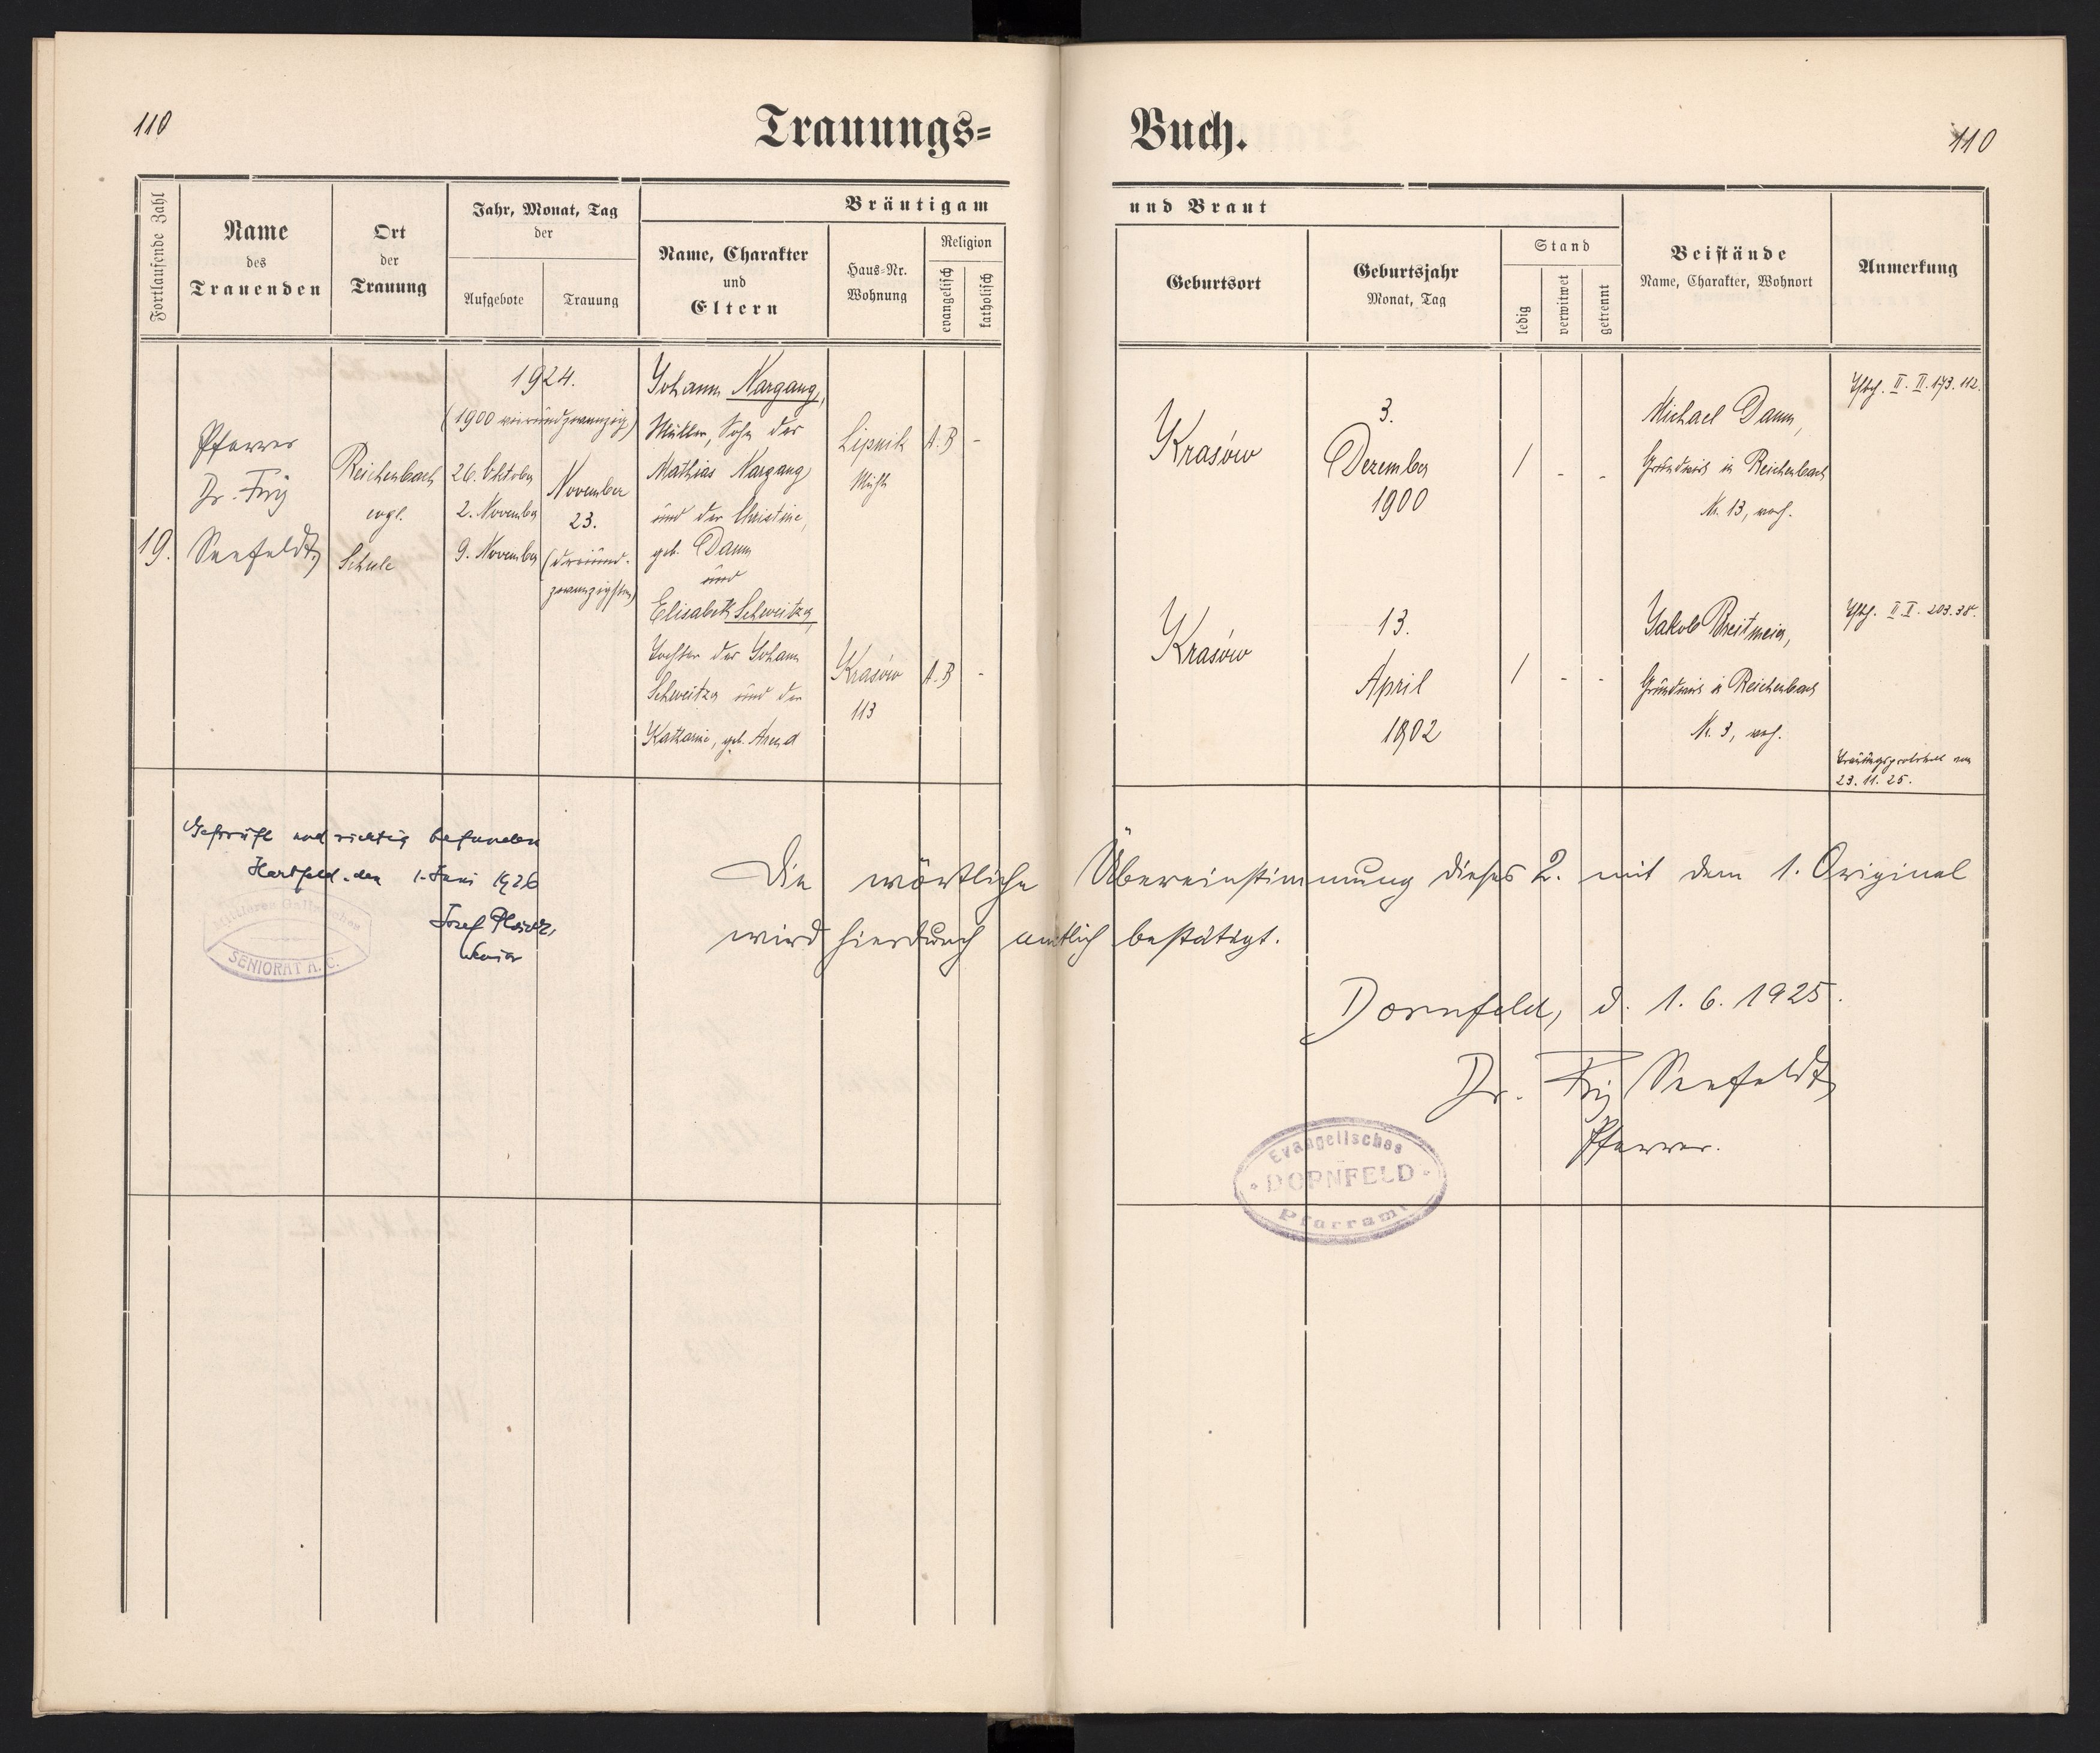 110
Trauungs=
Buch.
110
Fortlaufende Zahl
Name
des
Trauenden
Ort
der
Trauung
Jahr, Monat, Tag
der
Aufgebote
Trauung
Bräutigam
und Braut
Name, Charakter
und
Eltern
Haus-Nr.
Wohnung
Religion
evangelisch
katholisch
Geburtsort
Geburtsjahr
Monat, Tag
Stand
ledig
verwitwet
getrennt
Beistände
Name, Charakter, Wohnort
Anmerkung
19.
Pfarrer
Dr. Fritz
Seefeldt
Reichenbach
evgl.
Schule
1924.
(1900 vierundzwanzig)
26. Oktober
2. November
9. November
November
23.
(dreiund-
zwanzigsten)
Johann Nargang,
Müller, Sohn des
Mathias Nargang
und der Christine,
geb. Daum
und
Elisabeth Schweitzer,
Tochter des Johann
Schweitzer und der
Katharine, geb. Arend
Lipnik
A. B
-
Krasów
113
A. B
-
Krasów
3.
Dezember
1900
/
-
-
Michael Daum,
Grundwirt in Reichenbach
Nr. 13, evgl.
II. II. 173. 112.
Krasów
13.
April
1902
/
-
-
Jakob Breitmeier,
Grundwirt in Reichenbach
Nr. 3, evgl.
II. I. 203. 38.
Trauungsprotokoll vom
23. 11. 25.
Geprüft und richtig befunden
Hartfeld, den 1. Juni 1926
Josef
Senior
Mittleres Galizisches
SENIORAT A. C.
Die wörtliche Übereinstimmung dieses 2. mit dem 1. Original
wird hierdurch amtlich bestätigt.
Dornfeld, d. 1. 6. 1925.
Dr. Fritz Seefeldt
Pfarrer.
Evangelisches
DORNFELD
Pfarramt